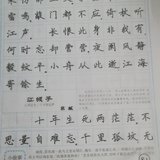 雷鸣。敲门都不应，倚杖听
江声。长恨此身非我有，
何时忘却营营。夜阑风静
縠纹平。小舟从此逝，江海
寄余生。
江城子
苏轼
十年生死两茫茫，不
思量，自难忘。千里孤坟，无